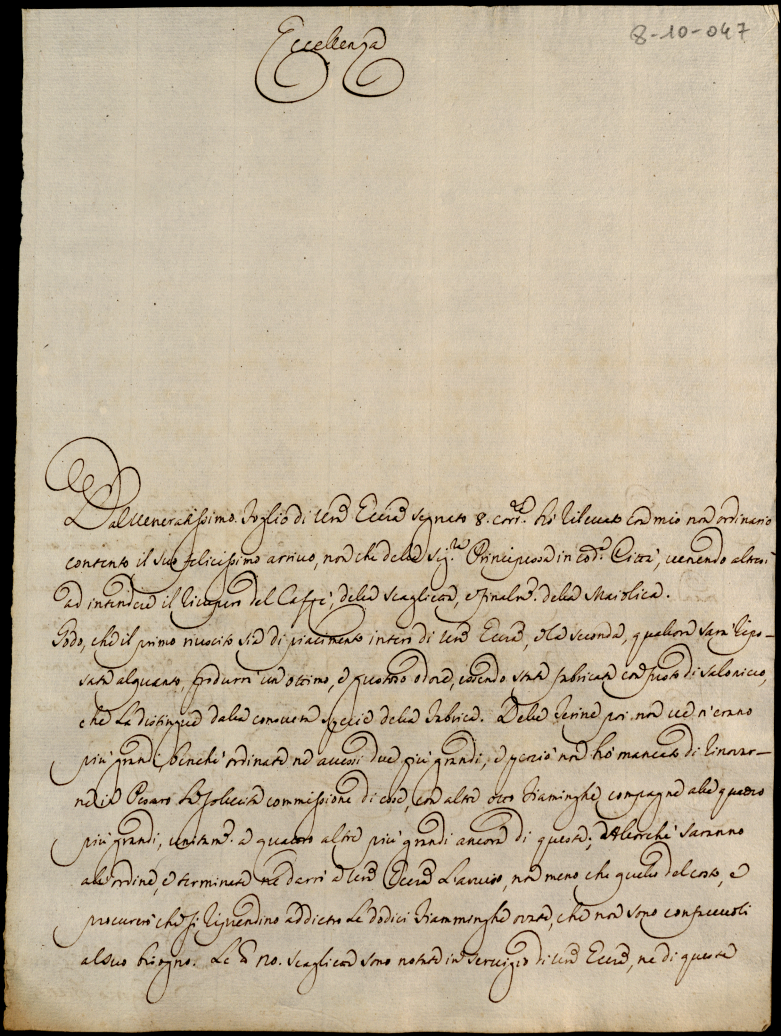 8-10-047
Eccellenza
Dal Veneratissimo foglio di Vrã Eccza segnato 8. corr.te hò rilevato con mio non ordinario
contento il suo felicissimo arrivo, non che della Sig.ra Principessa in cod.ª Città, venendo altresì
ad intendere il ricupero del Caffè, della Scaglietta, e finalm.te della Maiolica.
Godo, che il primo riuscito sia di piacimento intero di Vrã Eccza, e la seconda, qualora sarà ripo-
sata alquanto, produrrà un ottimo, e gustoso odore, essendo stata fabricata con fusto di Salonicco,
che la distingue dalla consueta specie della Fabrica. Delle Terine poi non ve n'erano
più grandi, benchè ordinate ne avessi due più grandi, e perciò non hò mancato di rinovar-
ne in Pesaro la sollecita commissione di esse, con altre otto Fiaminghe compagne alle quattro
più grandi, unitam.te a quattro altre più grandi ancora di queste; Allorchè saranno
all'ordine, e terminate ne darò a Vrã Eccza l'avviso, non meno che quello del costo, e
procurerò che si riprendino addietro le dodici Fiamminghe ovate, che non sono confacevoli
al suo bisogno. Le 120. Scagliette sono notate in servigio di Vrã Eccza, ne di queste